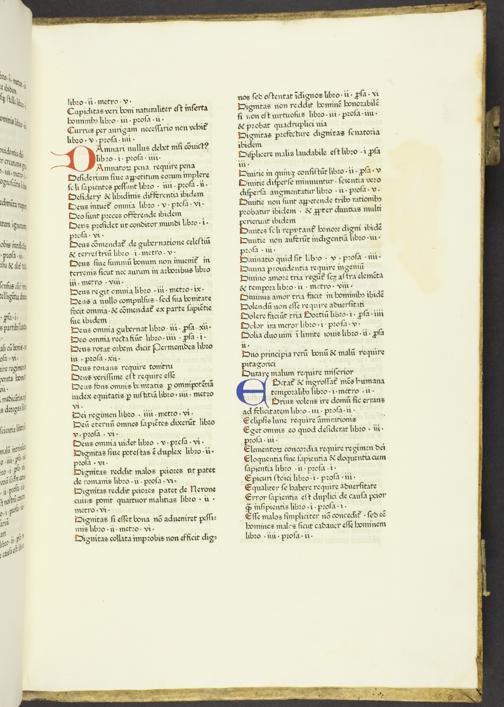 libro · ii · metro · v ·
Cupiditas veri boni naturaliter est inserta
hominibo libro · iii · prosa · ii ·
Currus per aurigam necessario non vehit
libro · v · prosa · iiii ·
DAmnari nullus debet nisi cōvict9
libro · i · prosa · iiii ·
Damnatorz pena require pena
Desiderium siue appetitum eorum implere
soli sapientes possunt libro · iiii · prosa · ii ·
Desiderij & libidinis differentia ibidem
Deus intuet omnia libro · v · prosa · vi ·
Deo sunt preces offerende ibidem
Deus presidet ut conditor mundi libro · i ·
prosa · vi ·
Deus cōmendat de gubernatione celestiū
& terrestriū libro · i · metro · v ·
Deus siue summū bonum non inuenit in
terrenis sicut nec aurum in arboribus libro
iii · metro · viii ·
Deus regit omnia libro · iii · metro · ix ·
Deus a nullo compulsus · sed sua bonitate
fecit omnia · & cōmendat ex parte sapiētie
sue ibidem
Deus omnia gubernat libro · iii · psa · xii ·
Deo omnia recta sūt libro · iiii · psa · i ·
Deus rotat orbem dicit Permenides libro
iii · prosa · xii ·
Deus tonans require tonitru
Deus verissime est require esse
Deus fons omnis bonitatis p omnipotētiā
iudex equitatis p iustitiā libro · iiii · metro
vi ·
Dei regimen libro · iiii · metro · vi ·
Deū eternū omnes sapiētes dixerūt libro
v · prosa · vi ·
Deus omnia videt libro · v · prosa · vi ·
Dignitas siue potestas ē duplex libro · ii ·
prosa · vi ·
Dignitas reddit malos peiores ut patet
de romanis libro · ii · prosa · vi ·
Dignitas reddit peiores patet de Nerone
cuius ponit quatuor malitias libro · ii ·
metro · vi ·
Dignitas si esset bona nō adueniret pessi-
mis libro · ii · metro · vi ·
Dignitas collata improbis non efficit dig-
nos sed ostentat īdignos libro · ii · psa · vi
Dignitas non reddit hominē honorabilē
si non est virtuosus libro · iii · prosa · iiii ·
& probat quadruplici via
Dignitas prefecture dignitas senatoria
ibidem
Displicere malis laudabile est libro · i · psa
iii ·
Diuitie in quinqz consistūt libro · ii · psa · v
Diuitie disperse minuuntur · scientia vero
dispersa augmentatur libro · ii · prosa · v ·
Diuitie non sunt appetende tribo rationibo
probatur ibidem · & ppter diuitias multi
perierunt ibidem
Diuites soli reputant honore digni ibidē
Diuitie non auferūt indigentiā libro · iii ·
prosa · iii ·
Diuinatio quid sit libro · v · prosa · iiii ·
Diuina prouidentia require ingeniū
Diuino amore tria regunt seqz astra elemēta
& tempora libro · ii · metro · viii ·
Diuinus amor tria facit in hominibo ibidē
Dolendū non esse require aduersitati
Dolere faciūt tria Boetiū libro · i · psa · iiii
Dolor ira meror libro · i · prosa · v ·
Dolia duo uini ī limite iouis libro · ii · psa
ii ·
Duo principia rerū bonū & malū require
pitagorici
Durare malum require miserior
EDocat & ingrossat mēs humana
temporalibo libro · i · metro · ii ·
Ebrius volens ire domū sic errans
ad felicitatem libro · iii · prosa · ii ·
Eclipsis lune require amirationis
Eget omnis eo quod desiderat libro · iii ·
prosa · iii ·
Elementorz concordia require regimen dei
Eloquentia sine sapientia & eloquentia cum
sapientia libro · ii · prosa · i ·
Epicuri stoici libro · i · prosa · iii ·
Equaliter se habere require aduersitate
Error sapientis est duplici de causa peior
q̄ insipientis libro · i · prosa · i ·
Esse malos simpliciter nō concedit · sed eē
homines malos sicut cadauer esse hominem
libro · iiii · prosa · ii ·